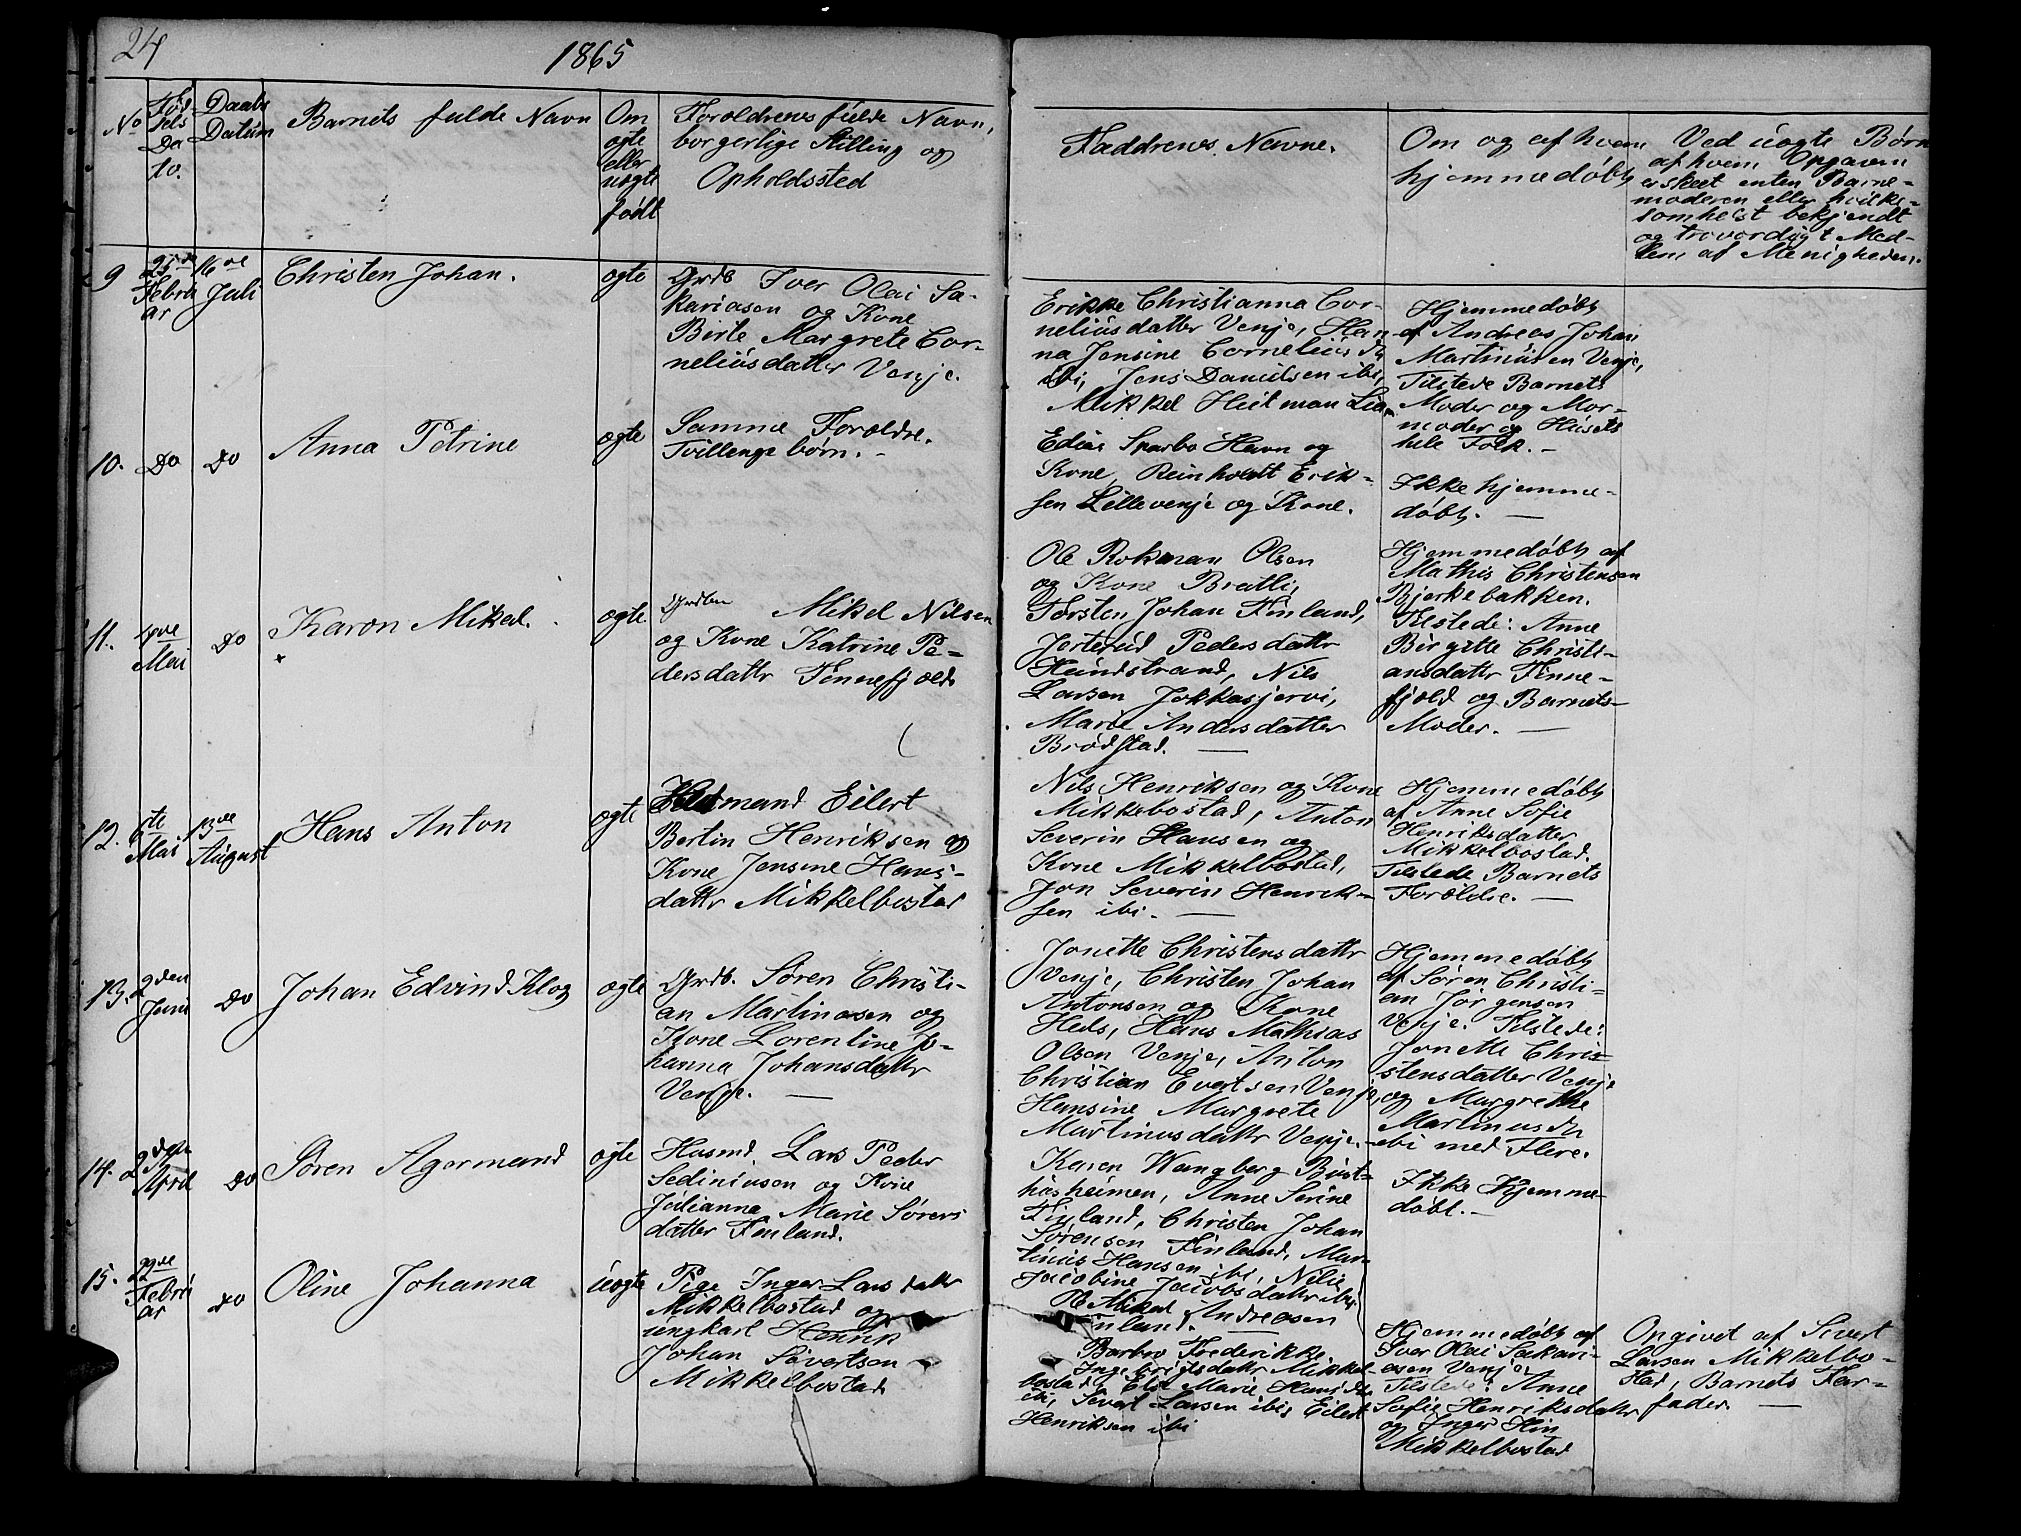 24
1865
No
Fød-
sels
Da
to.
Daabs
Datum
Barnets fulde Navn
Om
ægte
eller
uægte
født
Forældrenes fulde Navn,
borgerlige Stilling og
Opholdssted
Faddrenes Navne.
Om og af hvem
hjemmedøbt
Ved uægte Børn
af hvem Opgaven
er skeet enten Barne-
moderen eller hvilke-
somhelst bekjendt
og troværdigt Med-
lem af Menigheden.
9
Febru
ar
16de
Juli
Christen Johan.
ægte
Grdb Iver Olai Sa-
kariasen og Kone
Birte Margrete Cor-
neliusdatter Venje.
Erikke Christianna Cor-
neliusdatter Venje, Han
na Jensine Cornelius dr
ibi, Jens Danielsen ibi,
Mikkel Heitman Lia
Hjemmedøbt
af Andreas Johan
Martinusen Venje,
Tilstede Barnets
Moder og Mor-
moder og Husets
hele Folk. -
10.
Do
Do
Anna Petrine
ægte
Samme Forældre.
Tvillinge børn. -
Edias Sparbo Havn og
Kone, Reinholdt Erik-
sen Lillevenje og Kone.
Ikke hjemme-
døbt. -
11.
Mai
Do
Karen Mikal.
ægte
Grdbr Mikel Nilsen
og Kone Katrine Pe-
dersdattr Finnefjeld
Ole Rokman Olsen
og Kone Bratli,
Torsten Johan Finland,
Jertrud Pedersdattr
Hundstrand, Nils
Larsen Jokkasjervi,
Marie Andersdatter
Brødstad. -
Hjemmedøbt af
Mathis Christensen
Bjerkebakken.
Tilstede: Anne
Birgitte Christi-
ansdattr Finne-
fjeld og Barnets
Moder. -
12.
6te
Mai
13de
August
Hans Anton
ægte
Husmand Eilert
Bertin Henriksen og
Kone Jensine Hans-
dattr Mikkelbostad
Nils Henriksen og Kone
Mikkelbostad, Anton
Severin Hansen og
Kone Mikkelbostad,
Jon Severin Henrik-
sen ibi. -
Hjemmedøbt
af Anne Sofie
Henriksdatter
Mikkelbostad.
Tilstede Barnets
Forældre. -
13.
2den
Juni
Do
Johan Edvind Klog
ægte
Grdb. Søren Christi-
an Martinesen og
Kone Lorentine Jo-
hanna Johansdattr
Venje. -
Jonette Christensdattr
Venje, Christen Johan
Antonsen og Kone
Heds, Hans Mathias
Olsen Venje, Anton
Christian Evertsen Venje,
Hansine Margrete
Martinusdattr Venje.
Hjemmedøbt
af Søren Christi-
an Jørgensen
Venje. Tilstede:
Jonette Chris-
stensdatter Venje
og Margrethe
Martinusdr
ibi med Flere.
14.
2den
April
Do
Søren Agermand
ægte
Husmd. Lars Peder
Sediniusen og Kone
Julianna Marie Sørens
datter Finland.
Karen Wangberg Bust-
hasheimen, Anne Serine
Finland, Christen Johan
Sørensen Finland, Mar-
tinus Hansen ibi, Nille
Jacobine Jacobsdattr ibi
Ole Mikal Andreasen
Finland.
Ikke hjemme-
døbt. -
15.
22de
Febru
ar
Do
Oline Johanna
uægte
Pige Inger Lars datter
Mikkelbostad og
ungkarl Henrik
Johan Sivertsen
Mikkelbostad
Barbro Frederikke
Ingebrigtsdattr Mikkel
bostad, Else Marie Hansdr
ibi, Sivert Larsen ibi, Eilert
Henriksen ibi
Hjemmedøbt af
Iver Olai Sakari-
esen Venje.
Tilstede: Anne
Sofie Henriksdattr
og Inger Hin
Mikkelbostad
Opgivet af Sivert
Larsen Mikkelbo-
stad, Barnets Far-
fader. -